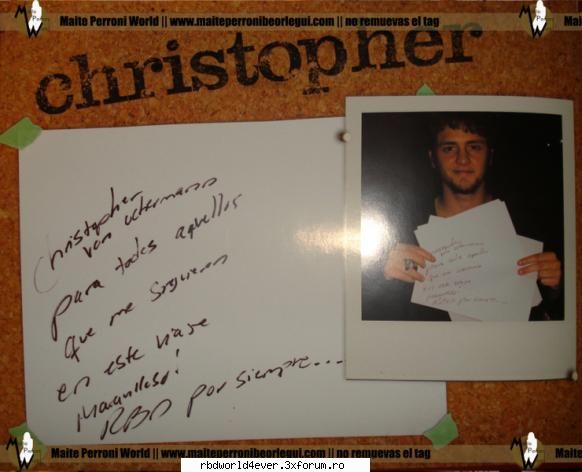 Maite Perroni World || www.maiteperronibeorlegui.com || no remuevas el tag
christopher
Christopher
von uckermann
para todos aquellos
que me siguieron
en este viaje
¡Maravilloso!
RBD por siempre...
Maite Perroni World || www.maiteperronibeorlegui.com || no remuevas el tag
rbdworld4ever.3xforum.ro